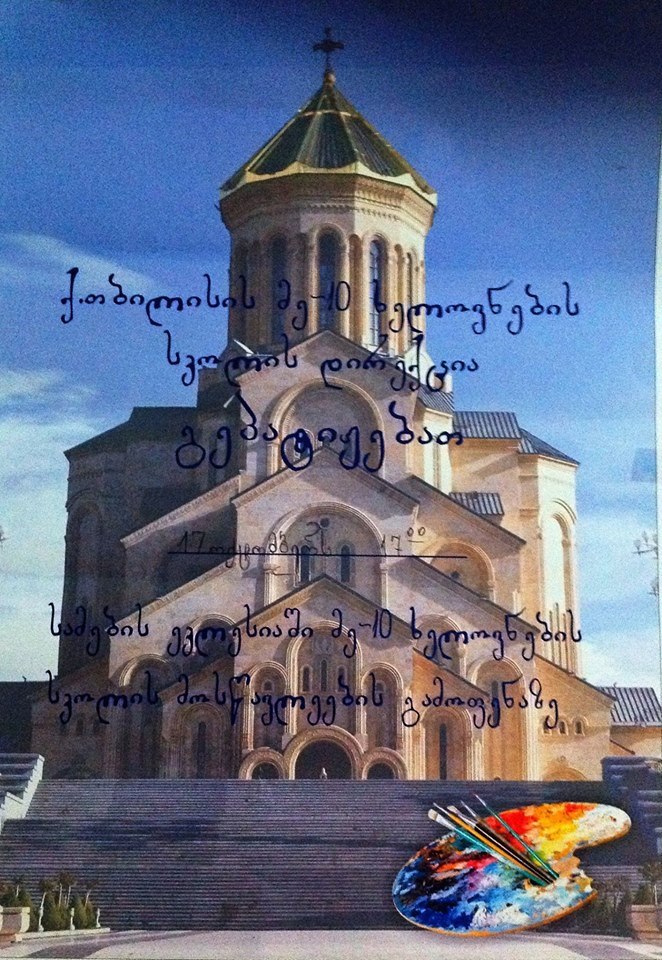 ქ.თბილისის მე-10 ხელოვნების
სკოლის დირექცია
გეპატიჟებათ
17 ოქტომბერს 17⁰⁰
სამების ეკლესიაში მე-10 ხელოვნების
სკოლის მოსწავლეების გამოფენაზე